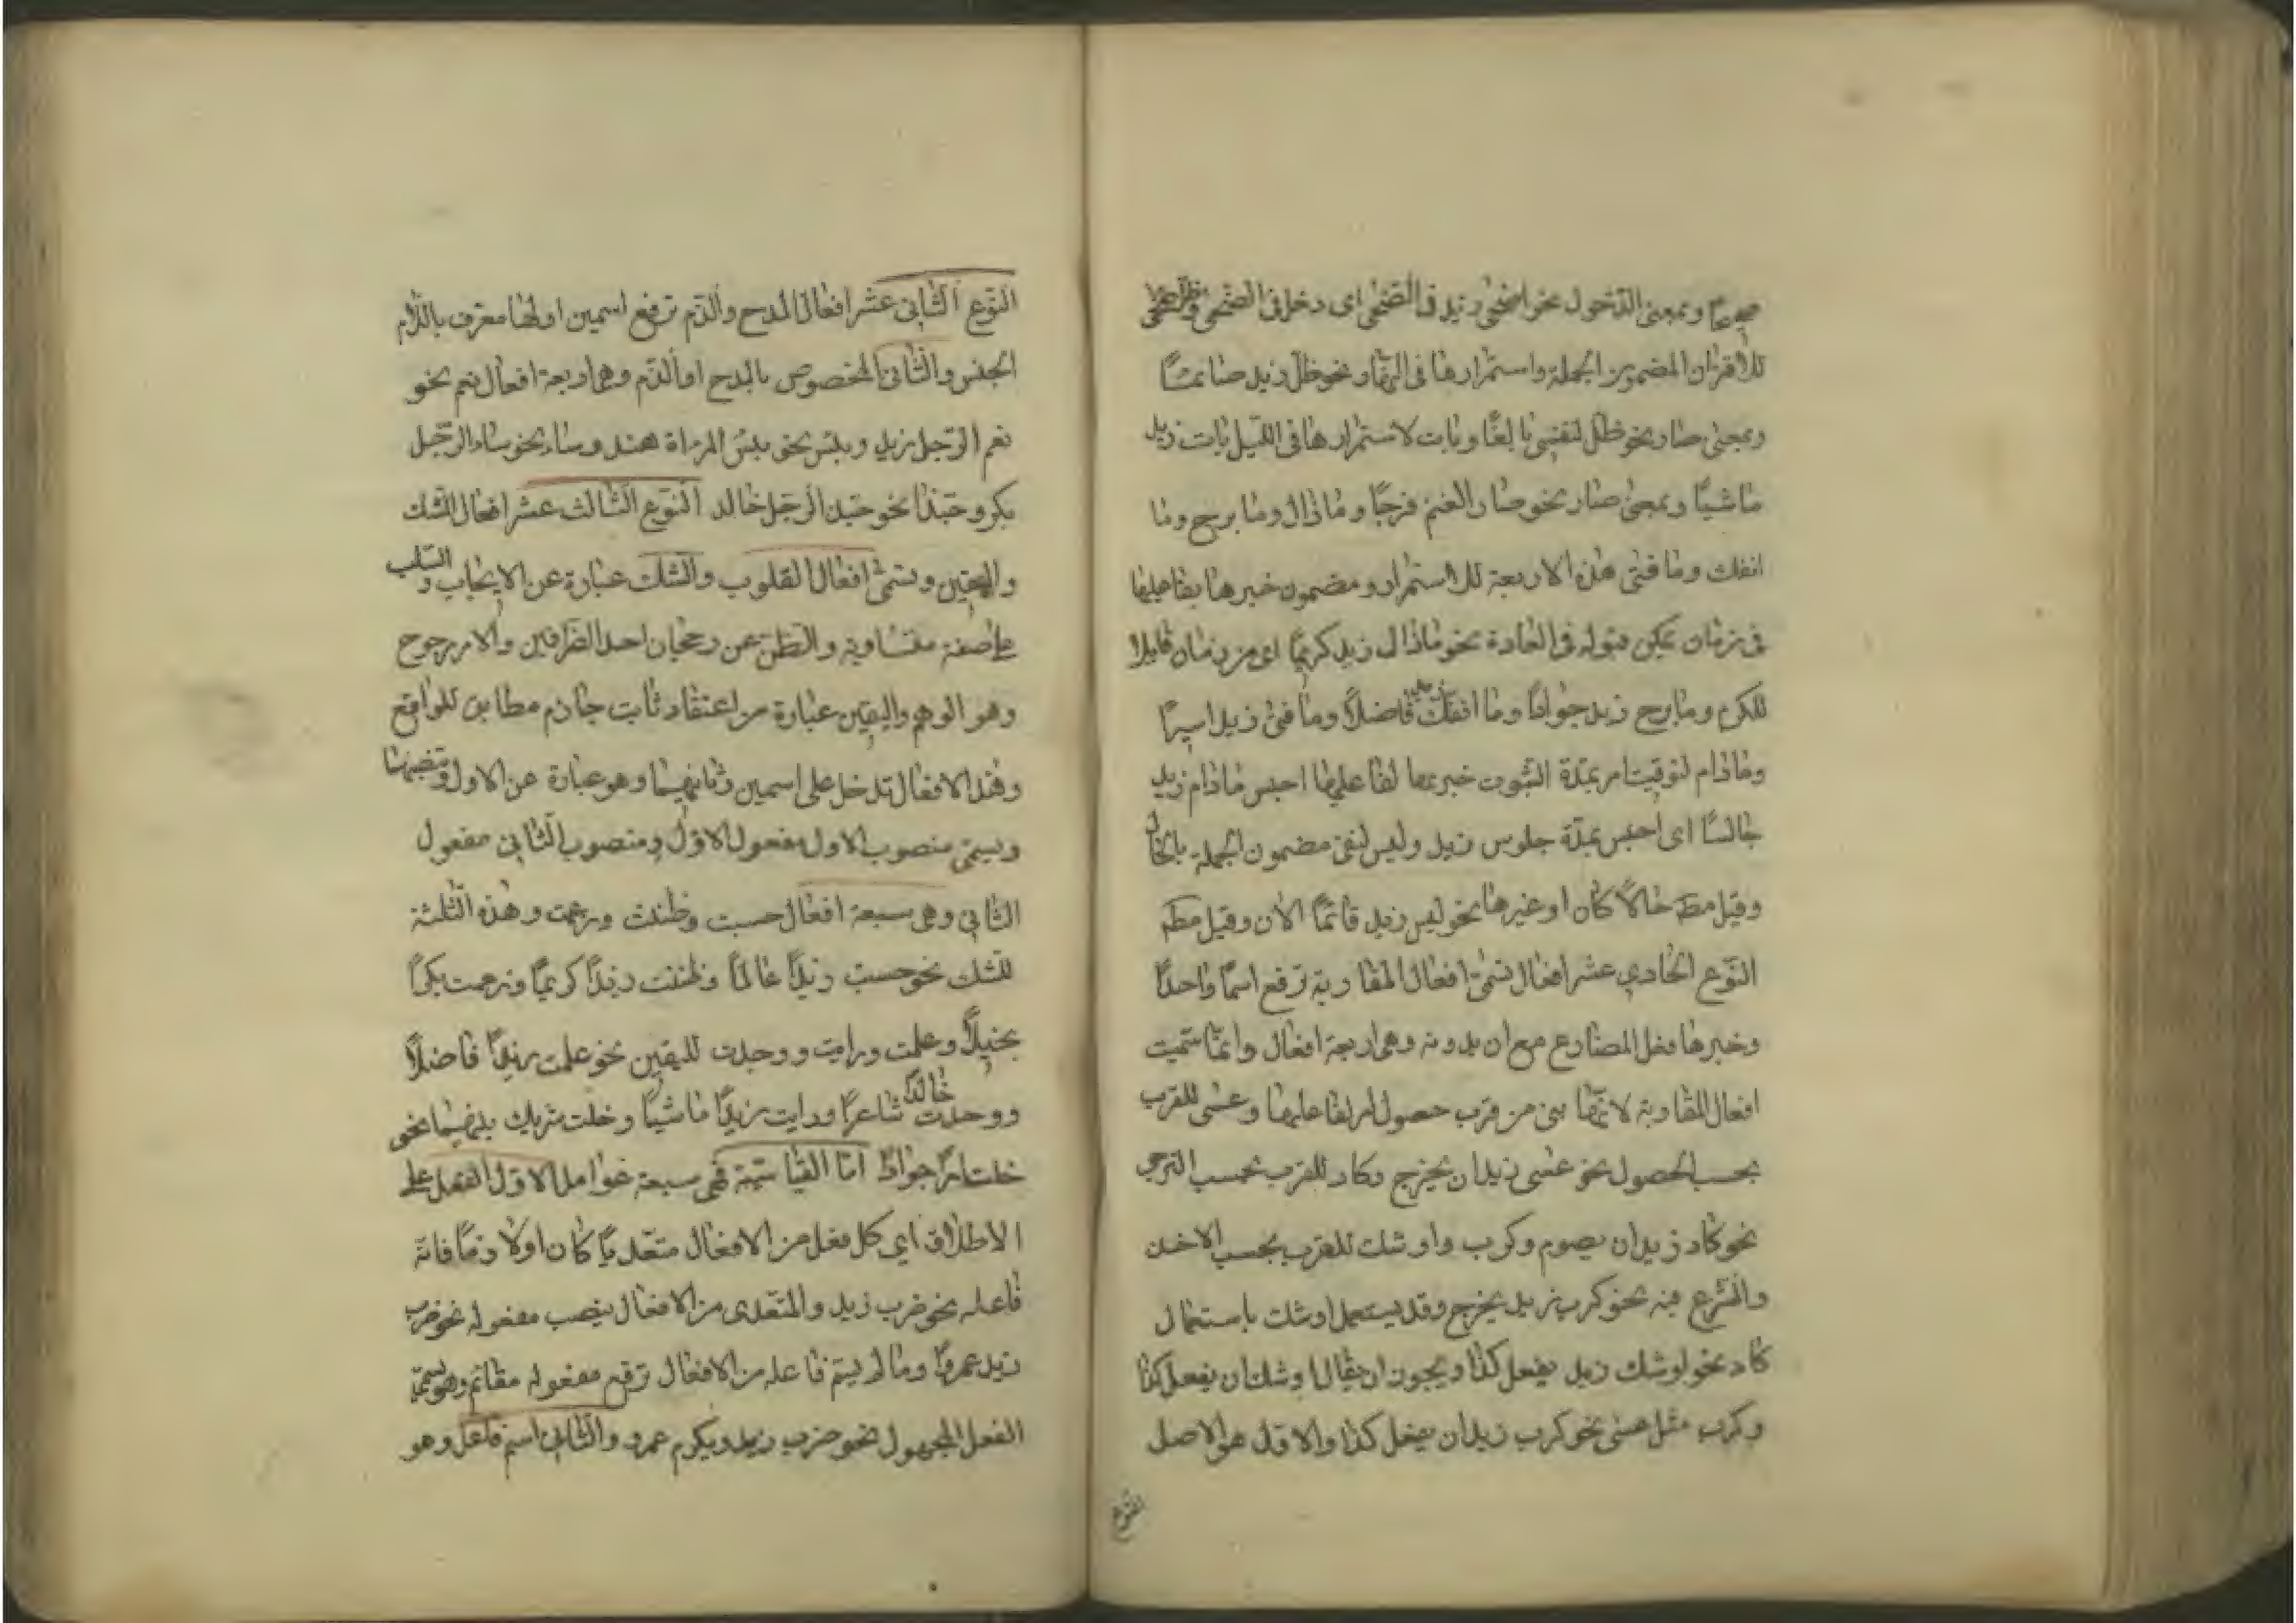 صحيحًا وبمعنى الدّخول نحو اضحى زيد فى الضّحى اى دخل فى الضّحى وظلّ
للاقتران المضمون الجملة واستمرارها فى النّهار نحو ظلّ زيد صائمًا
وبمعنى صار نحو ظلّ بالغًا وبات لاستمرارها فى اللّيل بات زيد
ماشيًا وبمعنى صار نحو صار الغنم ومازال ومابرح وما
انفك ومافتى هذه الاربعة للاستمرار ومضمون خبرها بفاعليها
فى زمان يمكن قبوله فى العادة نحو مازال زيد كريمًا اى من زمان قابلا
للكرم ومابرح زيد جوادًا وما انفك زيد فاضلًا ومافتى زيد اسيرًا
ومادام لتوقيت امر بمدّة الثبوت خبرها لفاعليها احبس مادام زيد
جالسًا اى احبس بمدّة جلوس زيد وليس لنفى مضمون الجملة بالحال
وقيل مطم حالًا كان او غيرها نحو ليس زيد قائمًا الان وقيل مطم
النّوع الحادي عشر افعال تسمّى افعال المقاربة ترفع اسمًا واحدًا
وخبرها فعل المضارع مع ان بدونه وهى اربعة افعال وانّما سمّيت
افعال المقاربة لانّها من قرب حصول امر لفاعلها وعسى للقرب
بحسب الحصول نحو عسى زيد ان يخرج وكاد للقرب بحسب الترجى
نحو كاد زيد ان يصوم وكرب واوشك للقرب بحسب الاخذ
والشّرع فيه نحو كرب زيد يخرج وقد يستعمل اوشك باستعمال
كاد نحو اوشك زيد يفعل كذا ويجوز ان يقال اوشك ان يفعل كذا
وكرب مثل عسى نحو كرب زيد ان يفعل كذا والاوّل هو الاصل
النوع
النّوع الثّانى عشر افعال المدح والذّم ترفع اسمين اولهما معرّف باللّام
الجنس والثّانى المخصوص بالمدح او الذّم وهى اربعة افعال نعم نحو
نعم الرّجل زيد وبئس نحو بئس المراة هند وساء نحو ساء الرّجل
بكر وحبّذا نحو حبّذ الرّجل خالد النّوع الثّالث عشر افعال الشّك
واليقين وتسمّى افعال القلوب والشّك عبارة عن الايجاب والسّلب
على صفة متساوية والظّنّ عن رجحان احد الطّرفين والاخر مرجوح
وهو الوهم واليقين عبارة من اعتقاد ثابت جازم مطابق للواقع
وهذه الافعال تدخل على اسمين ثانيهما وهو عبارة عن الاول وتنصبهما
ويسمّى منصوب الاول مفعول الاوّل ومنصوب الثّانى مفعول
الثّانى وهى سبعة افعال حسبت وظننت وزعمت وهذه الثّلثة
للشّك نحو حسبت زيدًا عالمًا وظننت زيدًا كريمًا وزعمت بكرًا
بخيلًا وعلمت ورايت ووجدت لليقين نحو علمت زيدًا فاضلًا
ووجدت خالدًا شاعرًا ورايت زيدًا ماشيًا وخلت مشترك بينهما نحو
خلت جوادًا امّا القياسيّة فهى سبعة عوامل الاوّل الفعل على
الاطلاق اى كل فعل من الافعال متعدّيًا كان او لازمًا فانّه
فاعله نحو ضرب زيد والمتعّدى من الافعال ينصب مفعوله نحو ضرب
زيد عمروًا وما لم يسّم فاعله من الافعال ترفع مفعوله مقائم وهو يسمّى
الفعل المجهول نحو ضرب زيد ويكرم عمرو والثّانى اسم فاعل وهو